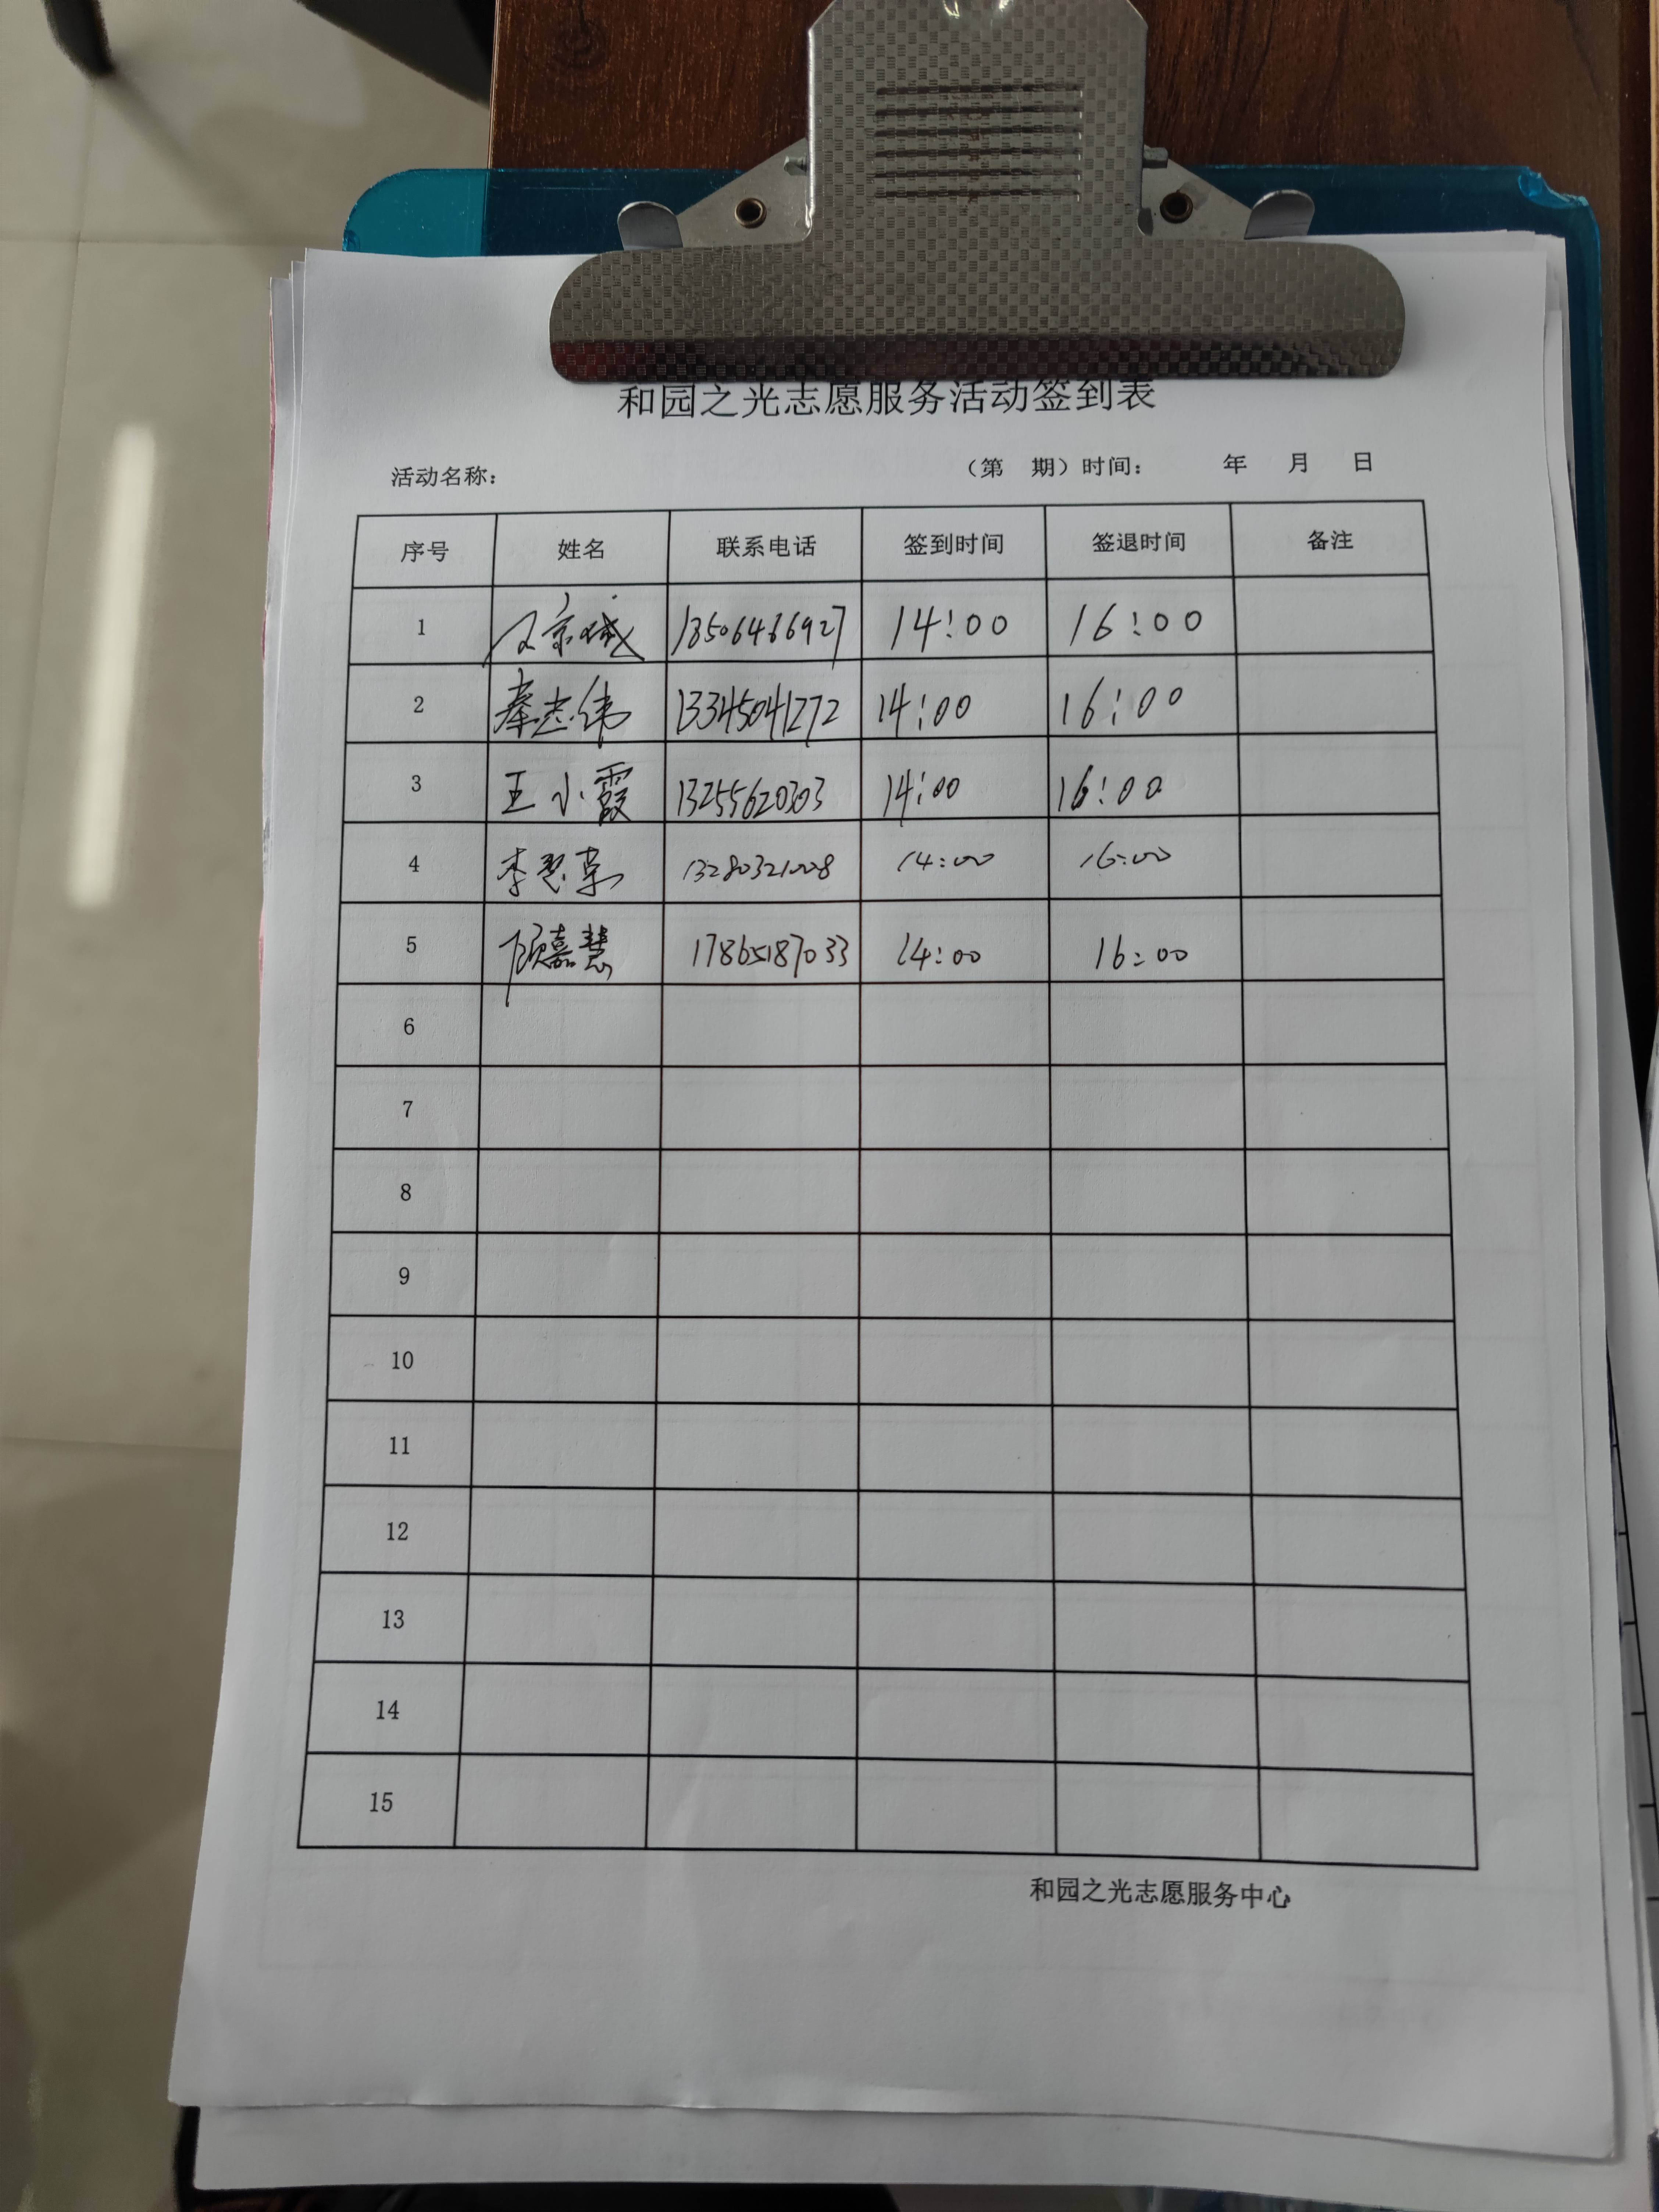 和园之光志愿服务活动签到表
活动名称： （第 期）时间： 年 月 日
序号 姓名 联系电话 签到时间 签退时间 备注
1 14:00 16:00
2 秦志伟 13345041272 14:00 16:00
3 王小霞 13255620303 14:00 16:00
4 李 14:00 16:00
5 顾嘉慧 17865187033 14:00 16:00
6
7
8
9
10
11
12
13
14
15
和园之光志愿服务中心